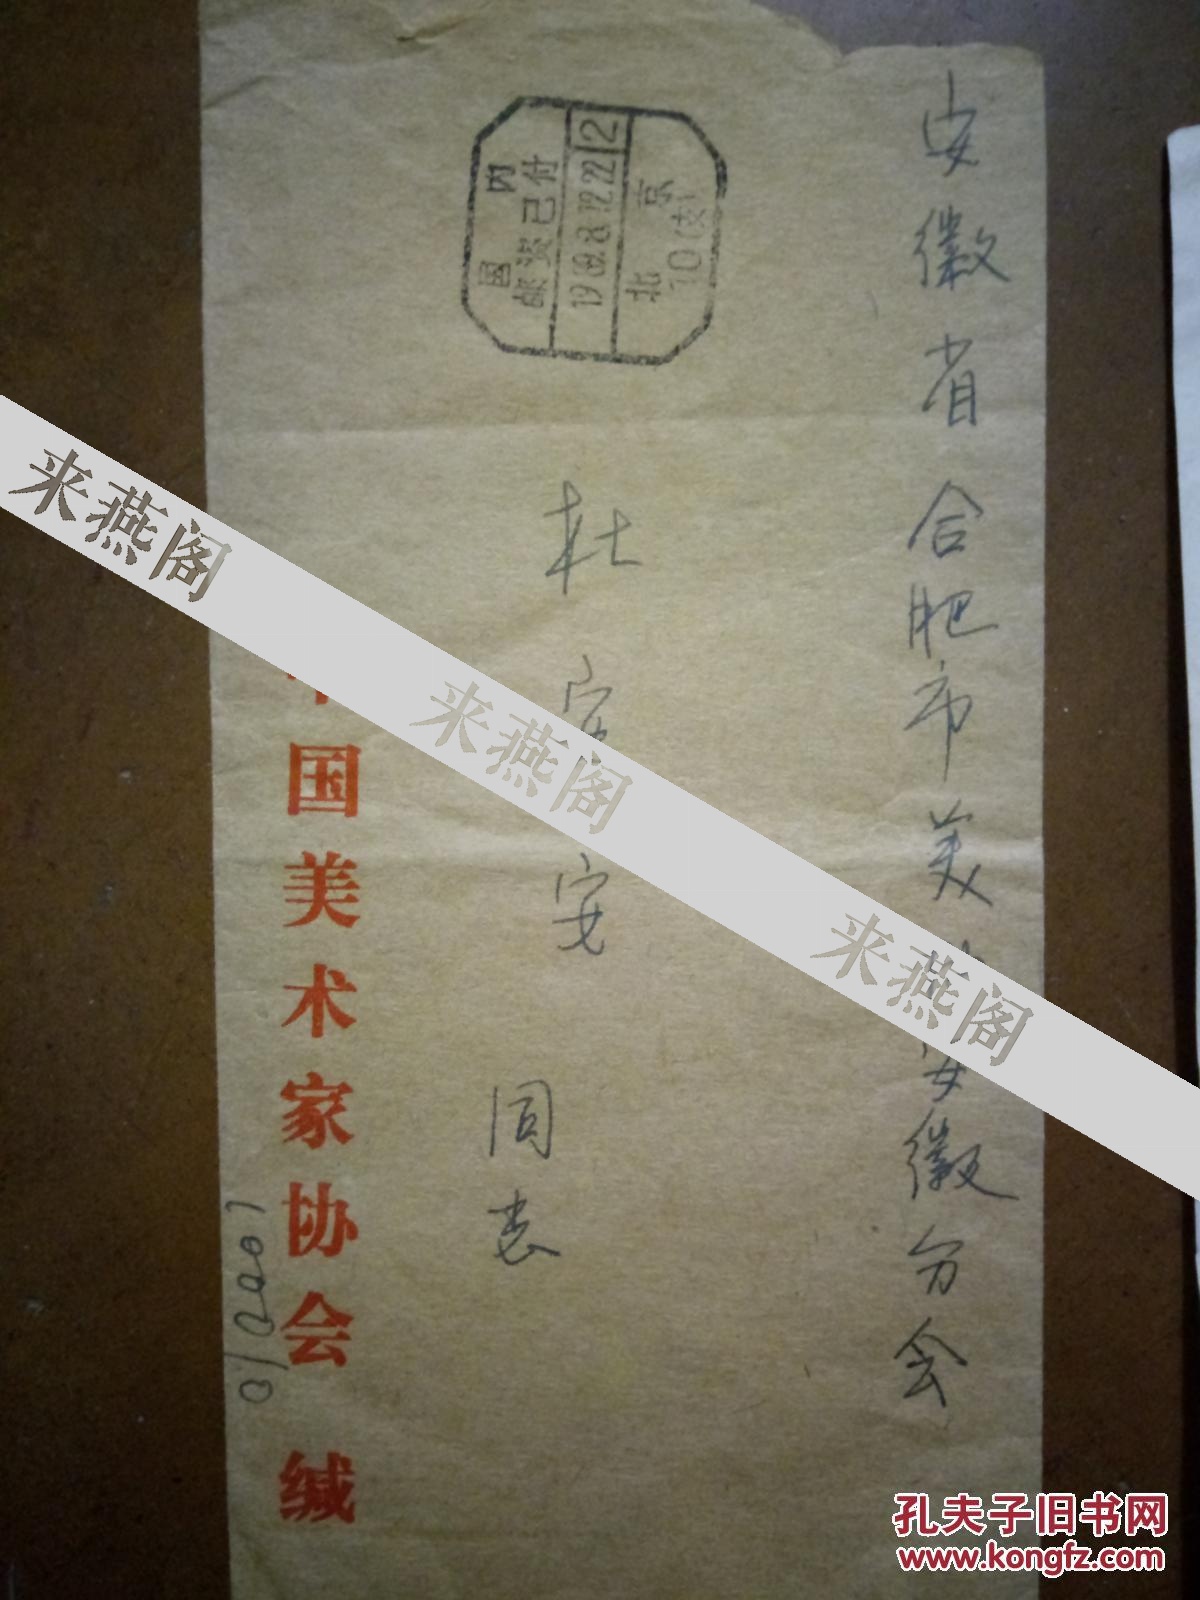 安徽省合肥市美 安徽分会
国内
邮资已付
19 89.8.12.22 2
北京
10(支)
杜宏安 同志
中国美术家协会 缄
来燕阁
来燕阁
来燕阁
孔夫子旧书网
www.kongfz.com